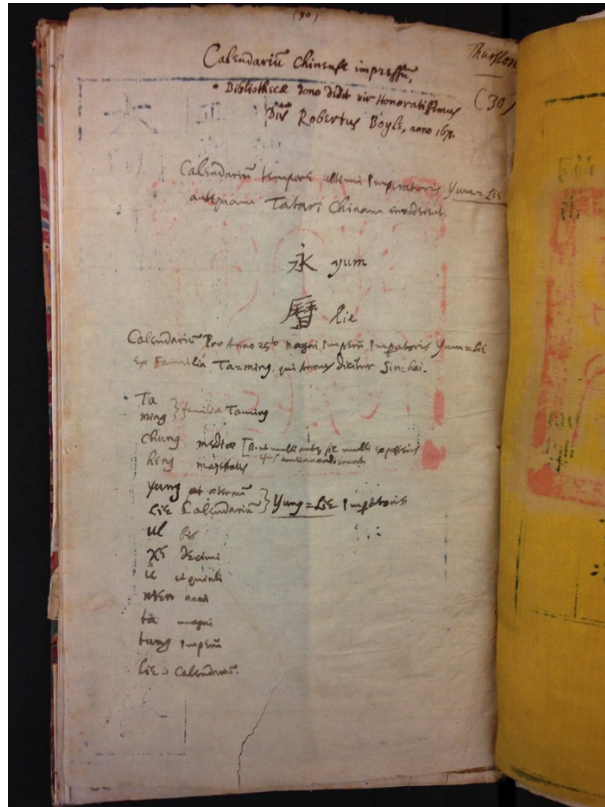 (30)
Calendariū Chinense impressū,
Thurston
Bibliothecæ dono dedit vir Honoratissimus
(30)
Dūs Robertus Boyle, anno 1671.
Calendariū tempore ultimi Imperatoris Yum=Lie
antequam Tatari Chinam invaderent.
永 yum
曆 Lie
Calendariū Pro Anno 25to magni Imperii Imperatoris Yum=Lie
Ex Familia Ta=ming, qui Annus dicitur Sin=hai.
Ta
ming } familia Taming
chung mediæ
hing majestatis
yung æternū
Lie Calendariū } Yung=Lie Imperatoris
ul bis
xe decimi
u et quinti
nien anni
ta magni
tung Imperii
Lie Calendariū.